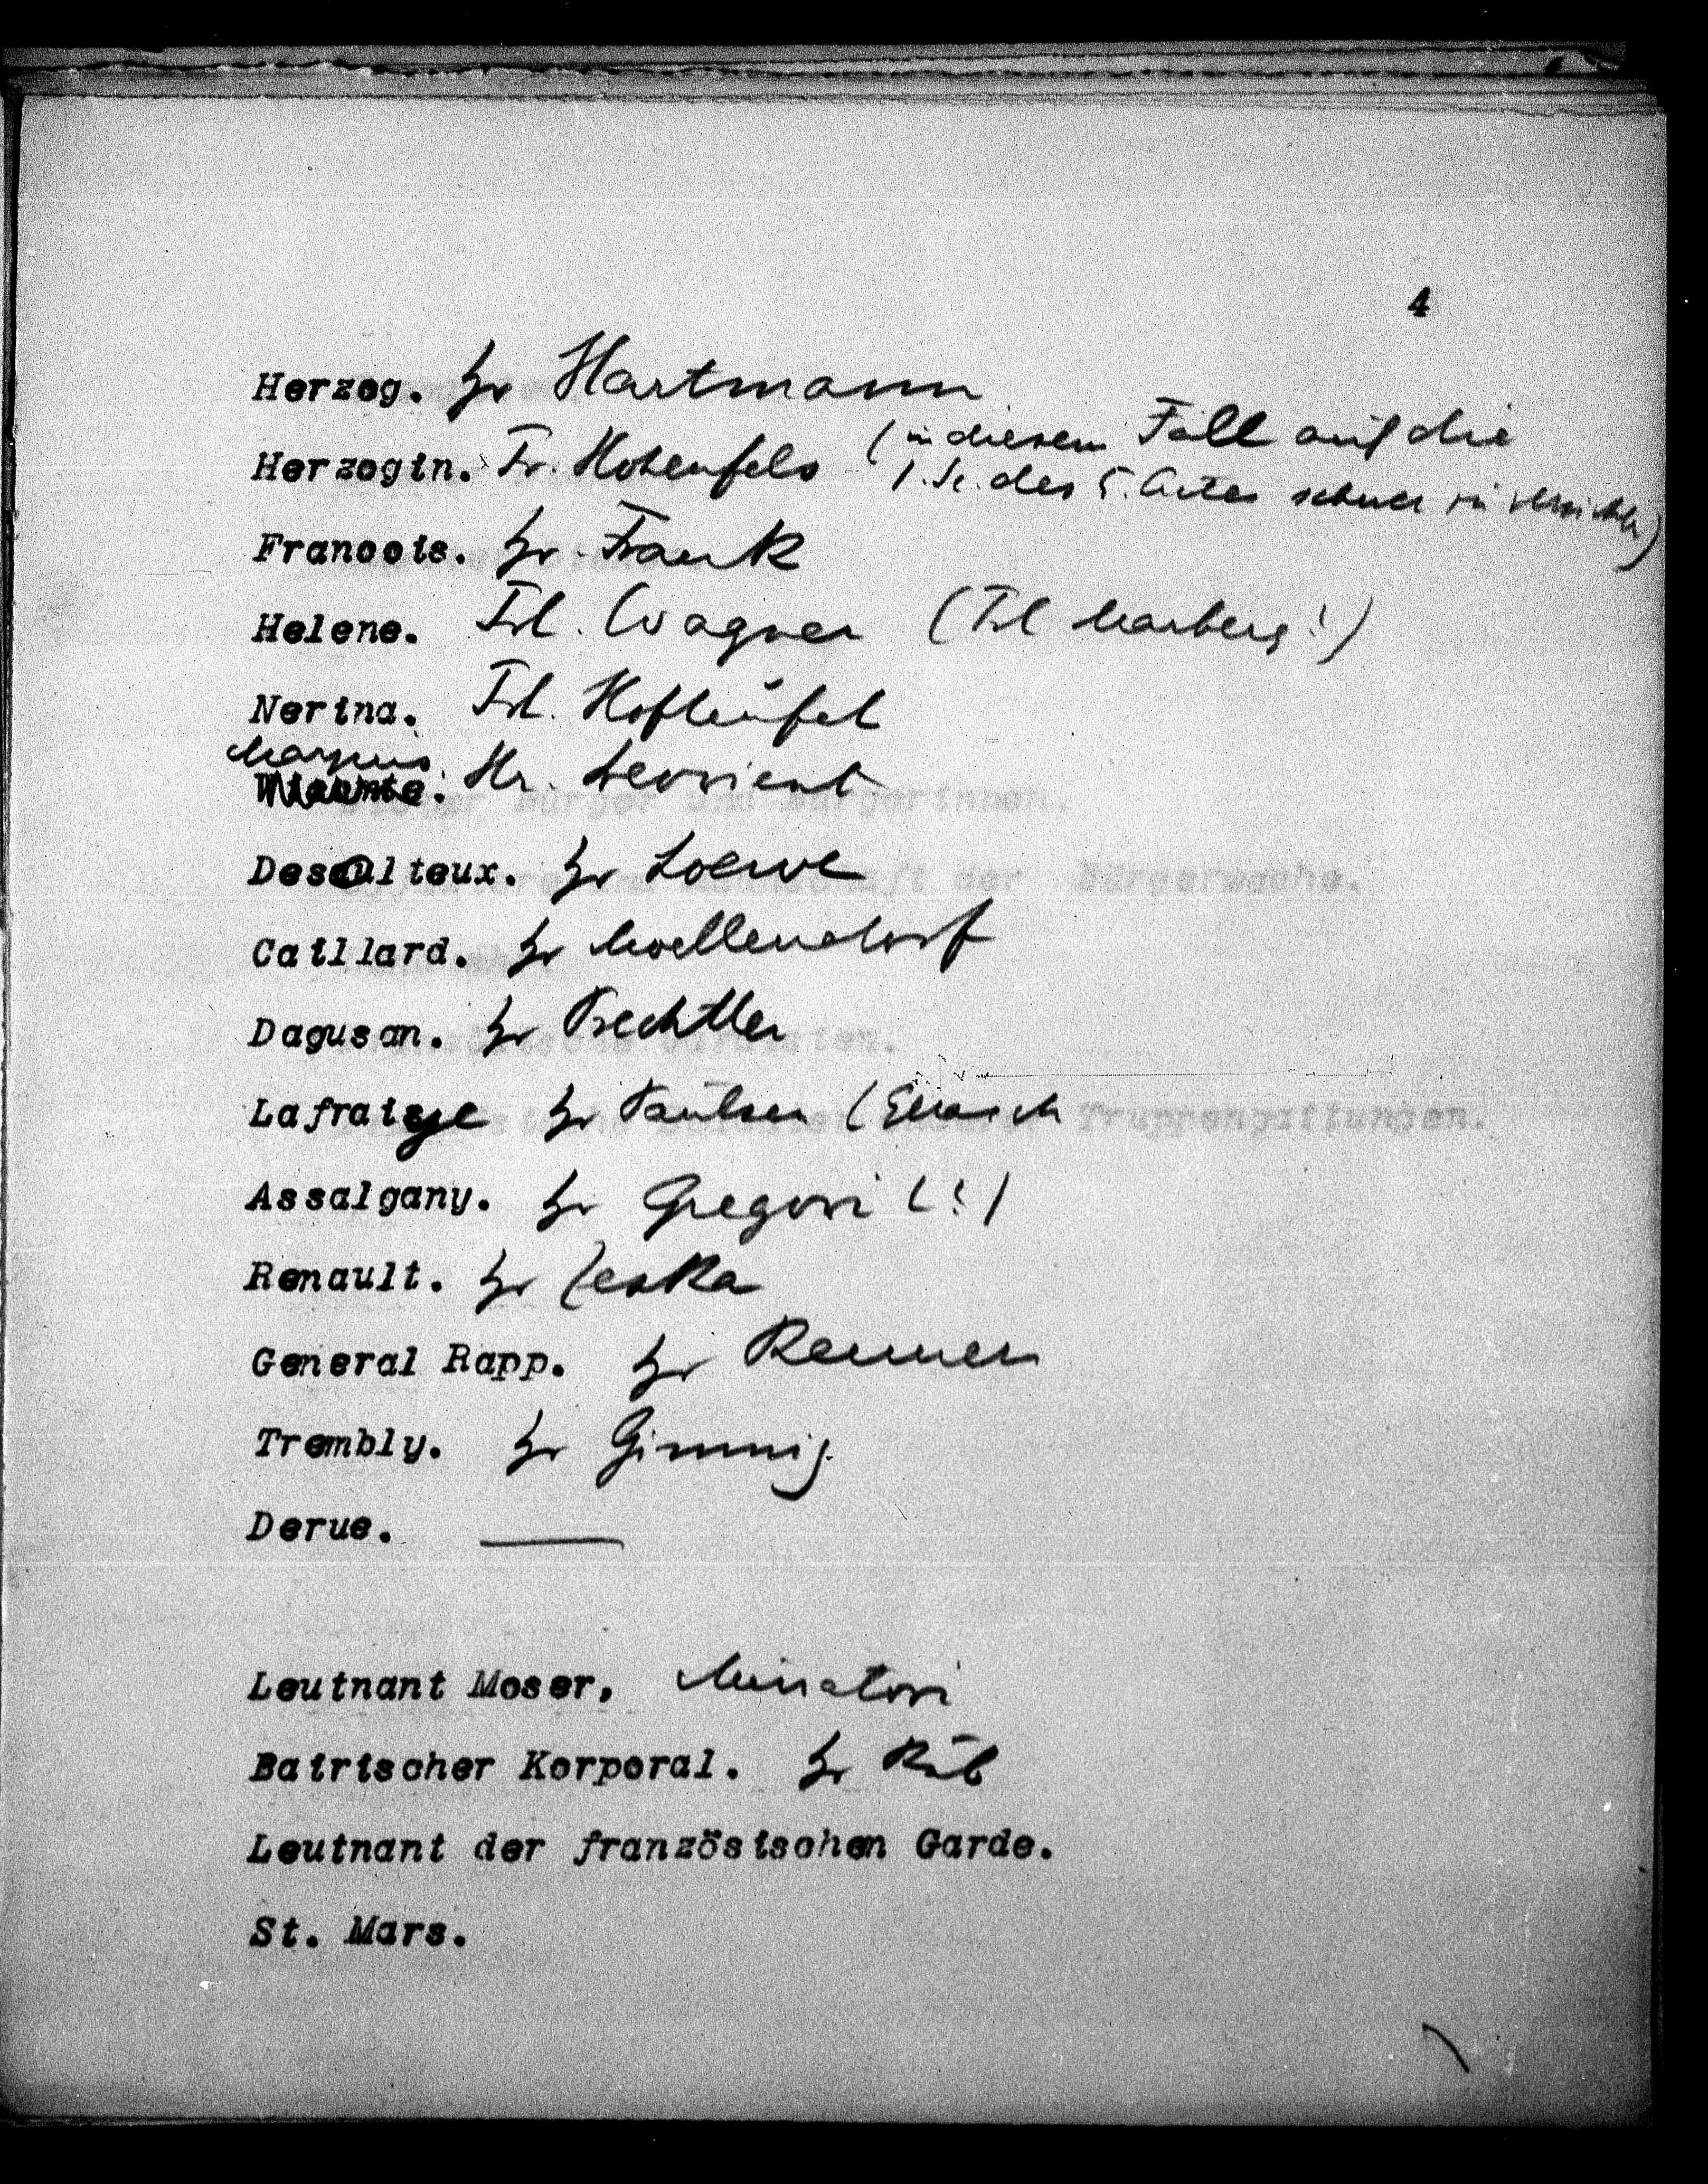 4
Herzog. Hr Hartmann
Herzogin. Fr. Hohenfels (in diesem Fall auf die
1. Sc. des 5. Actes schwer zu verzichten)
Francois. Hr. Frank
Helene. Frl. Wagner (Frl Marberg!)
Nerina. Frl. Hofteufel
Marquis. Hr. Devrient
Desalteux. Hr Loewe
Caillard. Hr Moellendorf
Dagusan. Hr Prechtler
Lafraise Hr Paulsen (
Assalgany. Hr Gregori (!)
Renault. Hr Zeska
General Rapp. Hr Renner
Trembly. Hr Gimnig.
Derue. —
Leutnant Moser, Muratori
Bairischer Korporal. Hr Rüb
Leutnant der französischen Garde.
St. Mars.